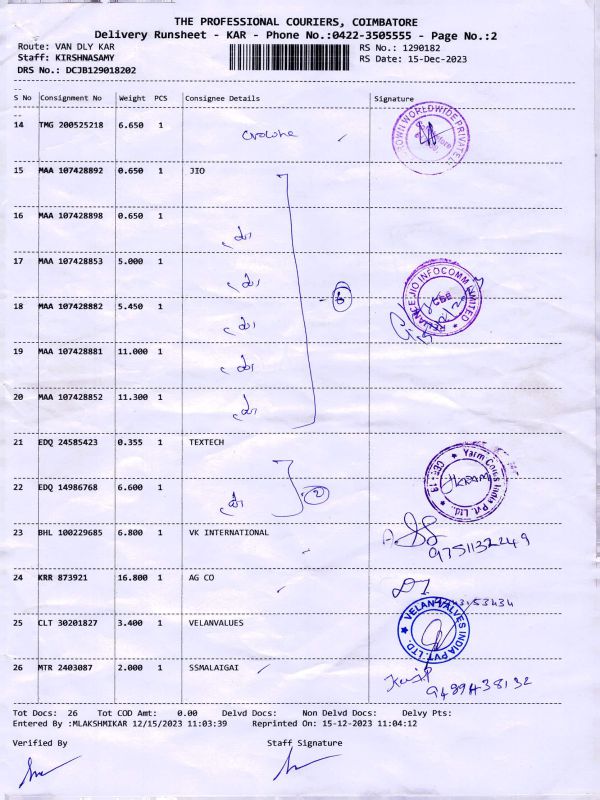 THE PROFESSIONAL COURIERS, COIMBATORE
Delivery Runsheet - KAR - Phone No.:0422-3505555 - Page No.:2
Route: VAN DLY KAR RS No.: 1290182
Staff: KIRSHNASAMY RS Date: 15-Dec-2023
DRS No.: DCJB129018202
S No Consignment No Weight PCS Consignee Details Signature
14 TMG 200525218 6.650 1
15 MAA 107428892 0.650 1 JIO
16 MAA 107428898 0.650 1
17 MAA 107428853 5.000 1
RELIANCE JIO INFOCOMM LIMITED
6
18 MAA 107428882 5.450 1
19 MAA 107428881 11.000 1
20 MAA 107428852 11.300 1
21 EDQ 24585423 0.355 1 TEXTECH
22 EDQ 14986768 6.600 1
2
23 BHL 100229685 6.800 1 VK INTERNATIONAL
9751132249
24 KRR 873921 16.800 1 AG CO
25 CLT 30201827 3.400 1 VELANVALUES
VELAN VALVES INDIA PVT. LTD
26 MTR 2403087 2.000 1 SSMALAIGAI
9489438132
Tot Docs: 26 Tot COD Amt: 0.00 Delvd Docs: Non Delvd Docs: Delvy Pts:
Entered By :MLAKSHMIKAR 12/15/2023 11:03:39 Reprinted On: 15-12-2023 11:04:12
Verified By Staff Signature